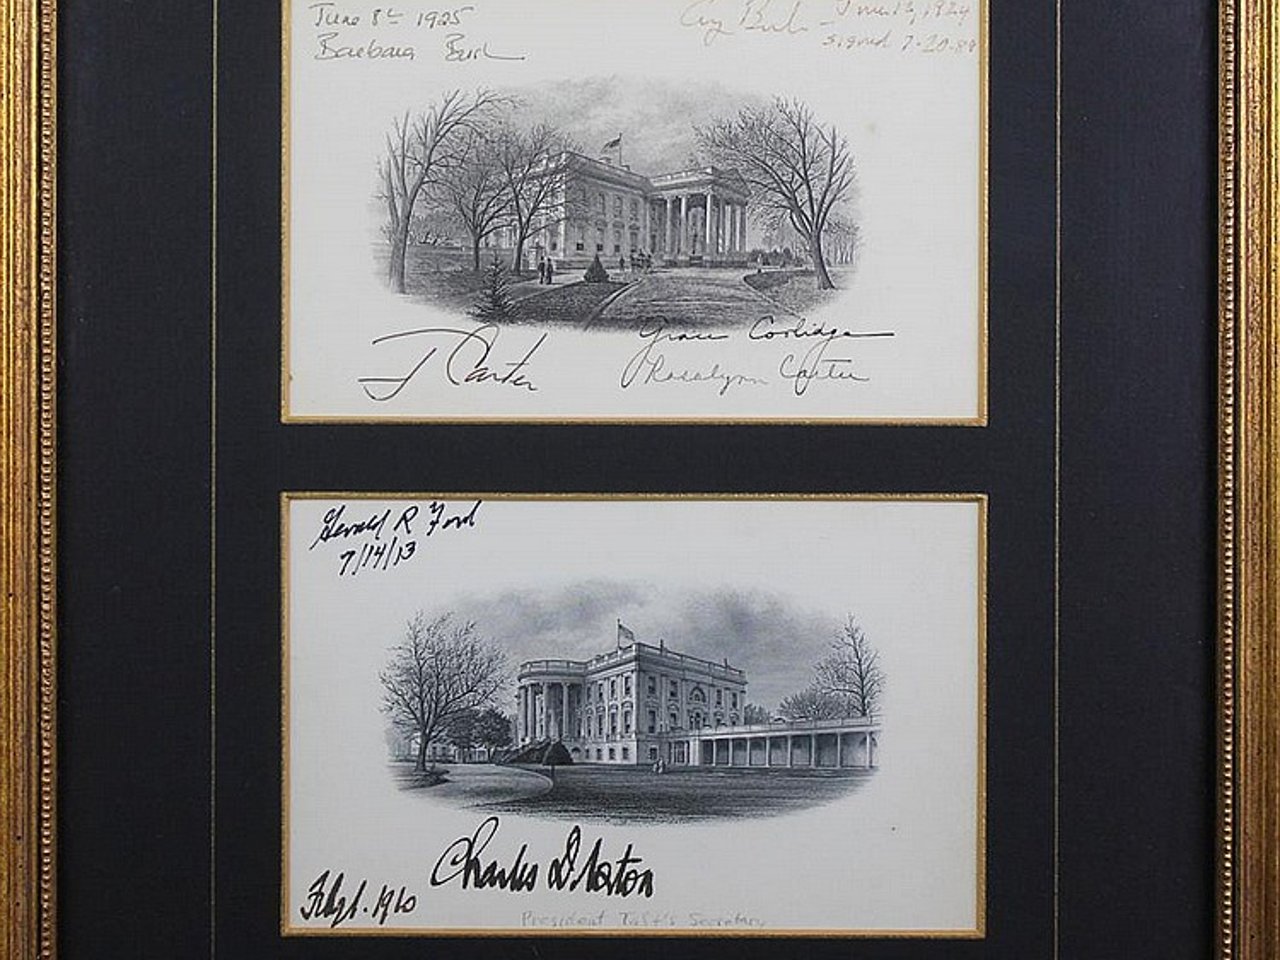 June 8th 1925
Barbara Bush
G Bush - June 12, 1924
signed 7-20-89
J Carter
Grace Coolidge
Rosalynn Carter
Gerald R Ford
7/14/13
Charles D Norton
1910
President Taft's Secretary